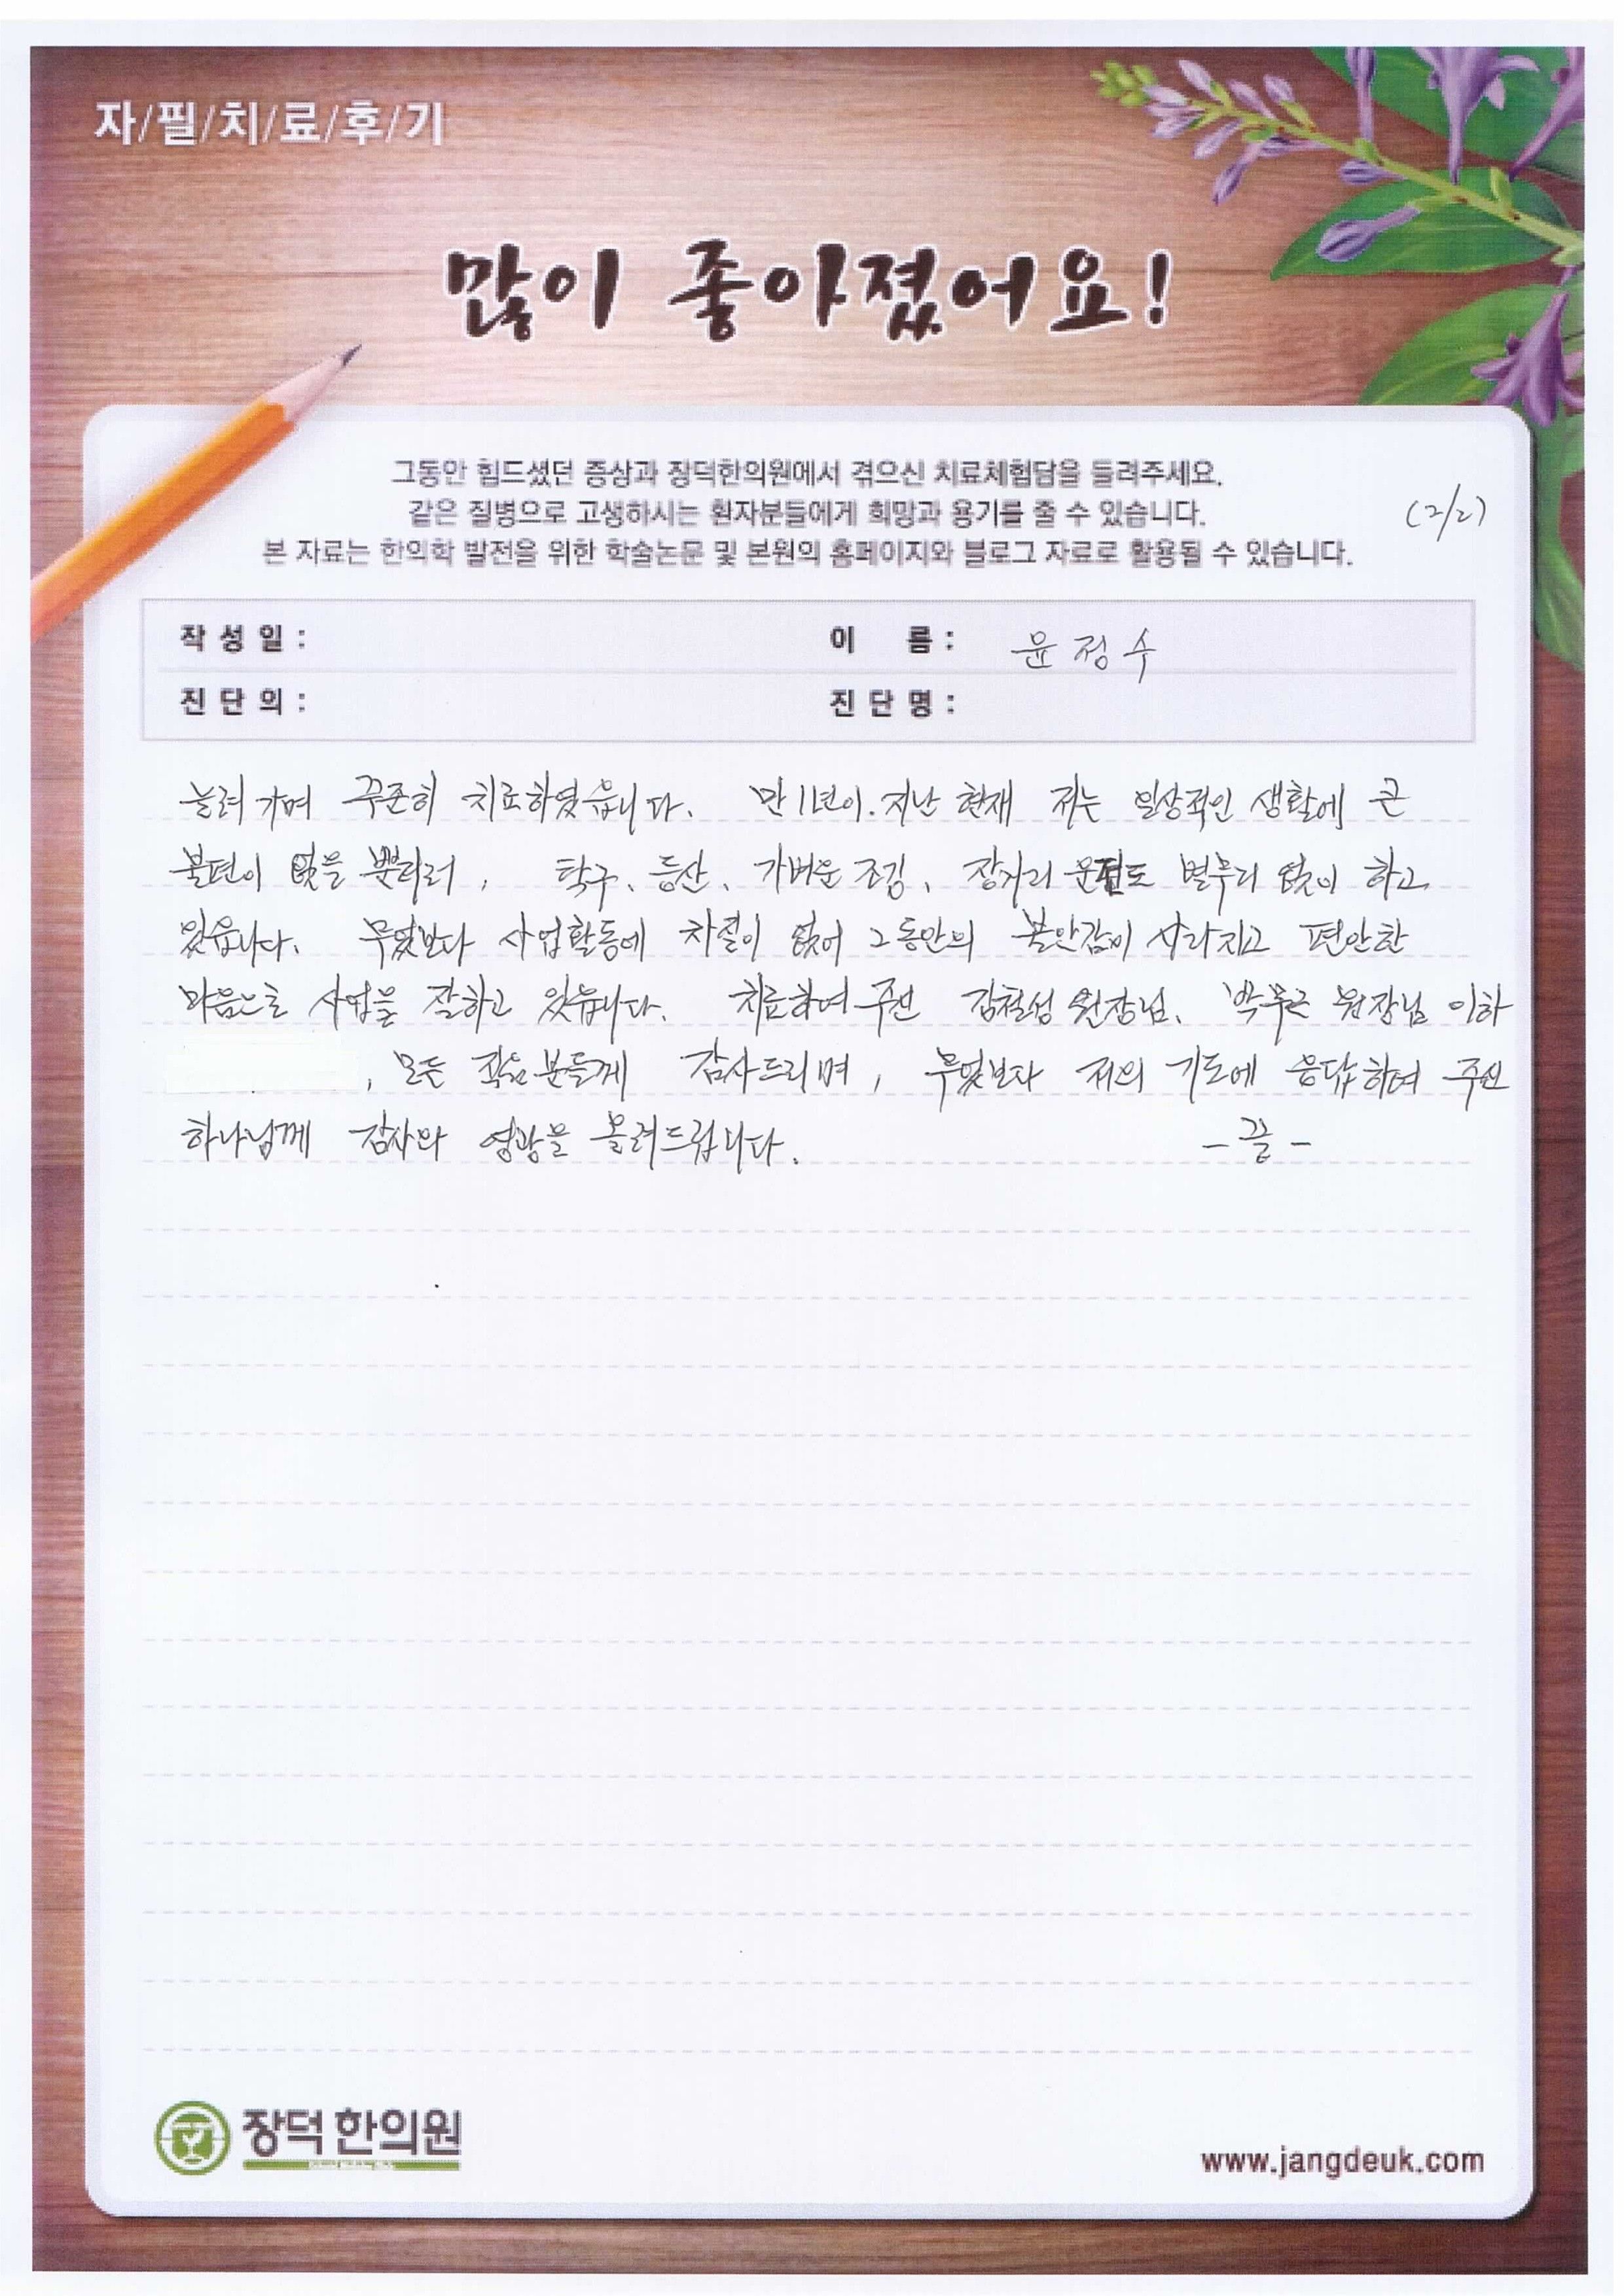 자/필/치/료/후/기
많이 좋아졌어요!
그동안 힘드셨던 증상과 장덕한의원에서 겪으신 치료체험담을 들려주세요.
같은 질병으로 고생하시는 환자분들에게 희망과 용기를 줄 수 있습니다.
(2/2)
본 자료는 한의학 발전을 위한 학술논문 및 본원의 홈페이지와 블로그 자료로 활용될 수 있습니다.
작 성 일 : 이 름 : 윤정수
진 단 의 : 진 단 명 :
늘려가며 꾸준히 치료하였읍니다. 만 1년이.지난 현재 저는 일상적인 생활에 큰
불편이 없을 뿐더러, 탁구, 등산, 가벼운 조깅, 장거리 운전도 별무리 없이 하고
있읍니다. 무엇보다 사업활동에 차질이 없어 그동안의 불안감이 사라지고 편안한
마음으로 사업을 잘하고 있읍니다. 치료하여 주신 김철성 원장님, 박무근 원장님 이하
, 모든 직원분들께 감사드리며, 무엇보다 저의 기도에 응답하여 주신
하나님께 감사와 영광을 올려드립니다. - 끝 -
장덕한의원
www.jangdeuk.com